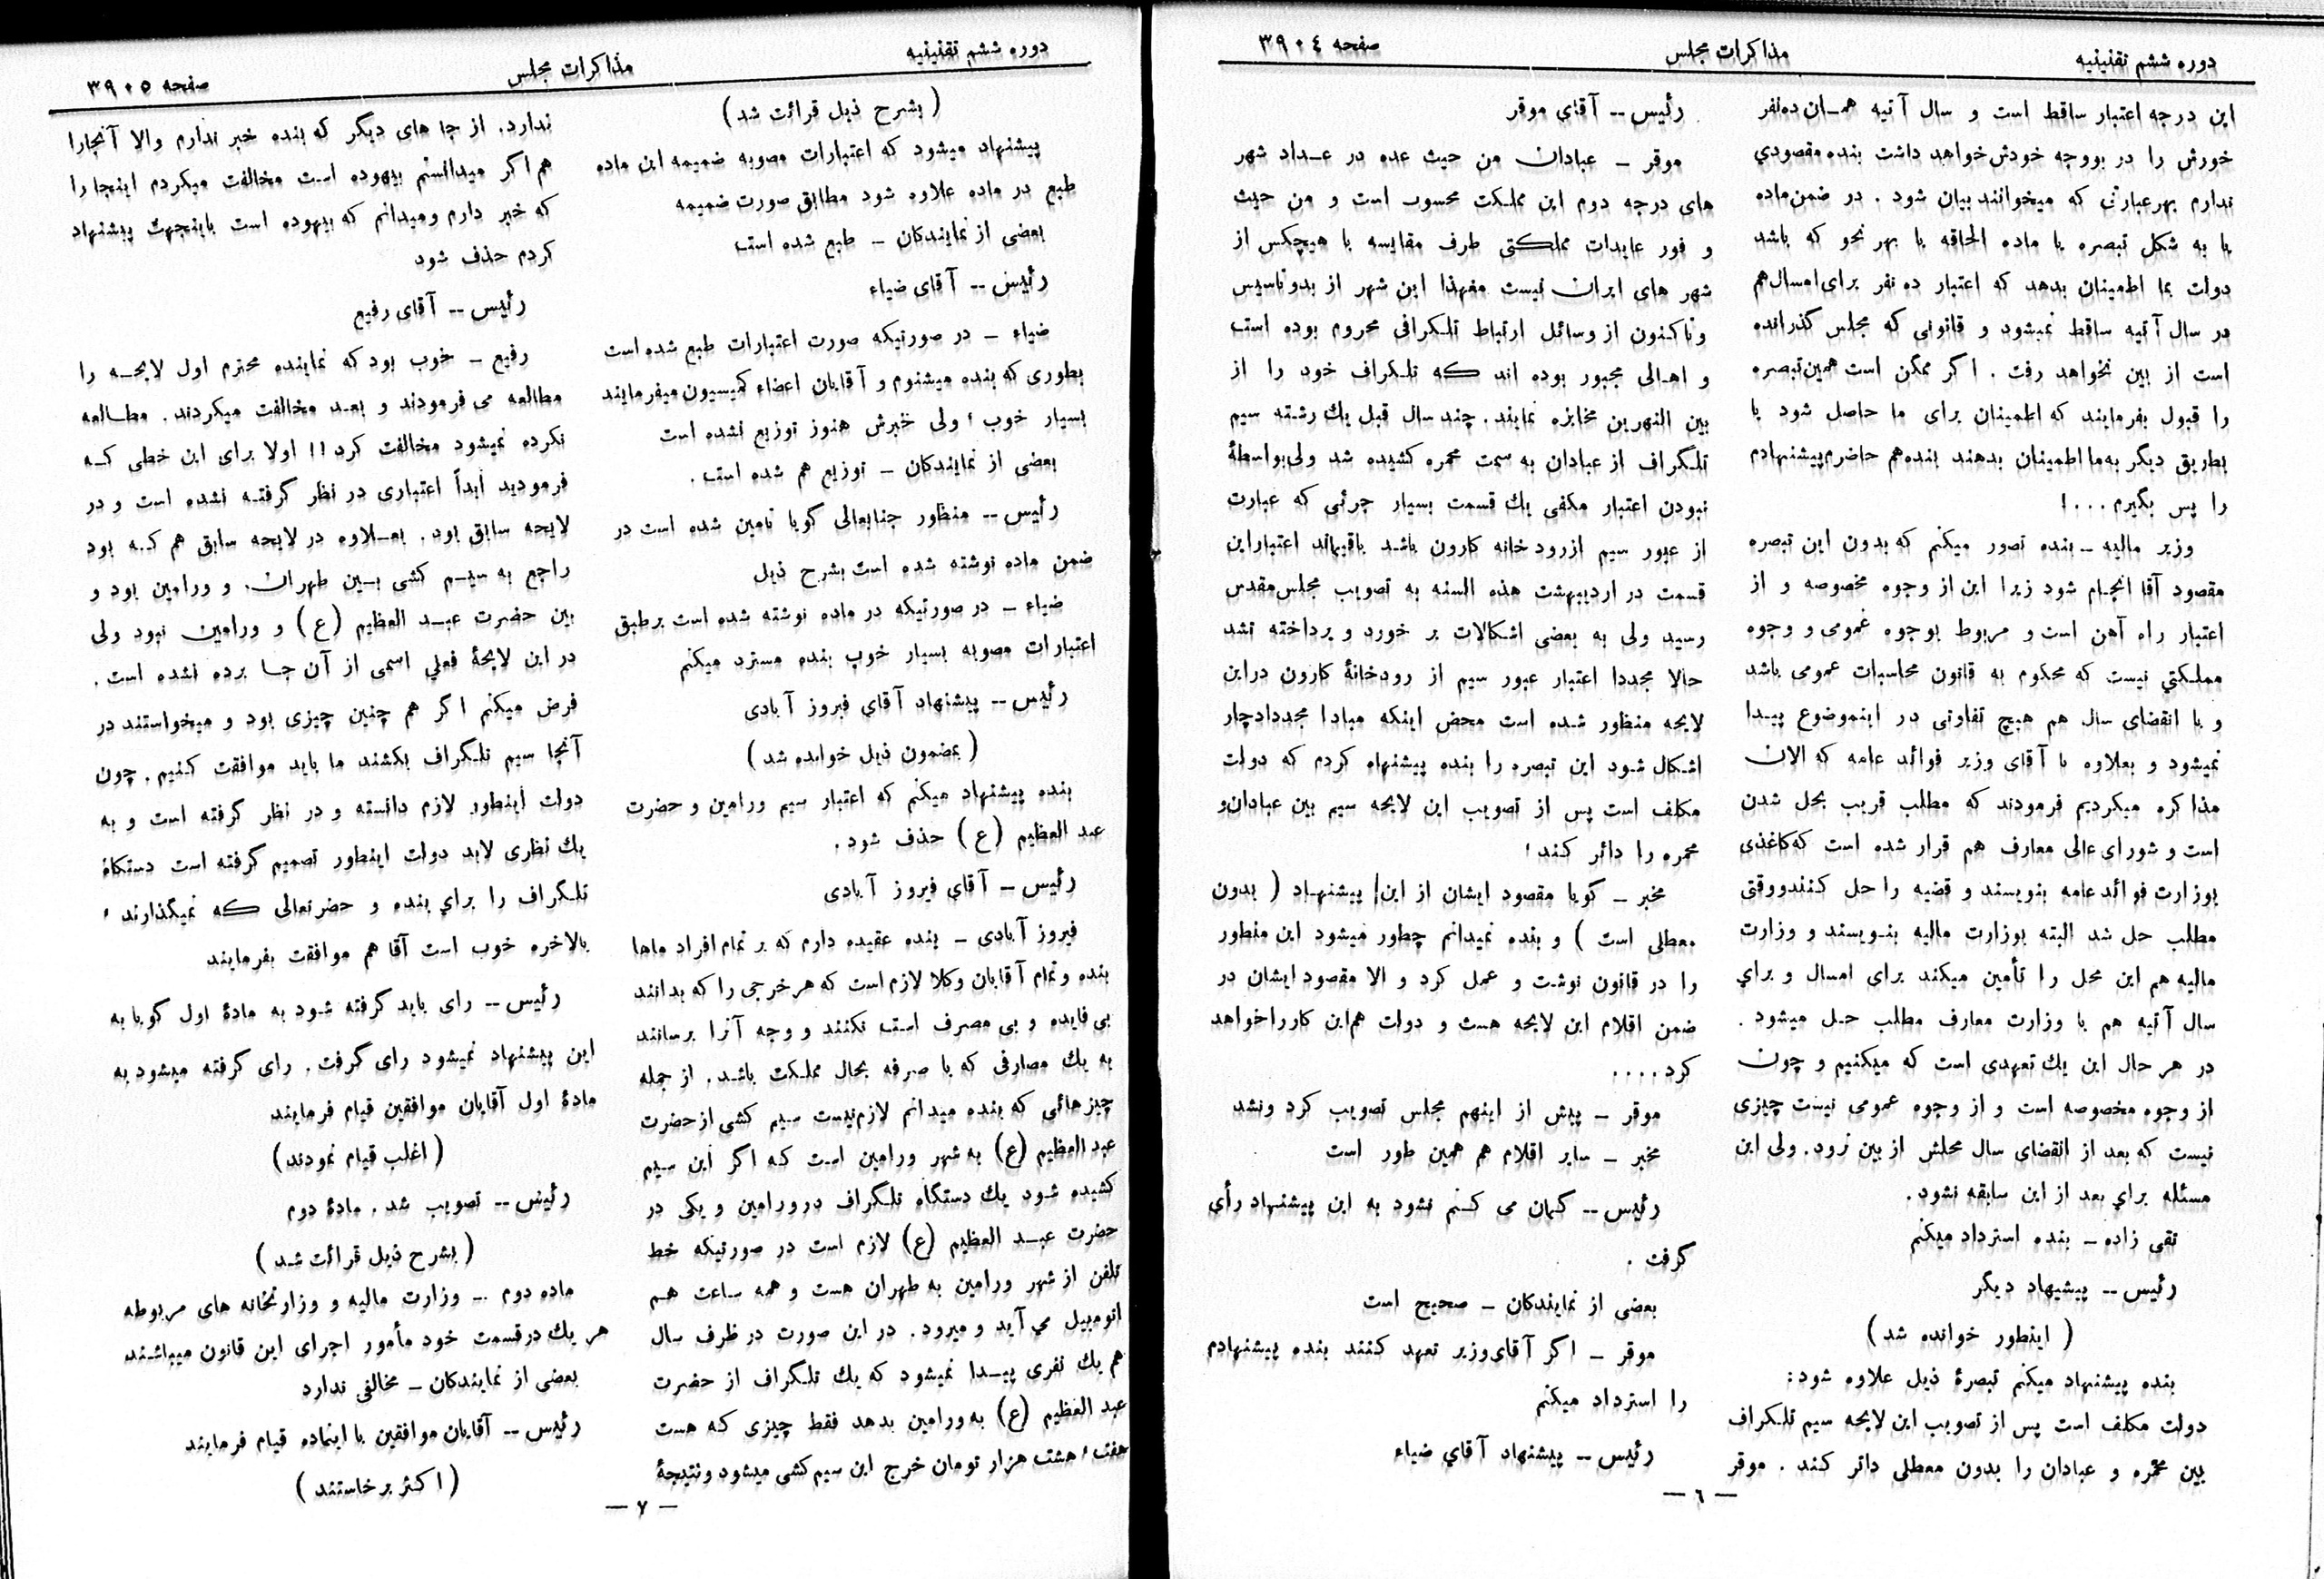 دوره ششم تقنینیه
مذاکرات مجلس
صفحه ۳۹۰٤
این درجه اعتبار ساقط است و سال آتیه همان ده‌نفر
خورش را در بووجه خودش خواهد داشت بنده مقصودي
ندارم بهر عبارتی که میخوانند بیان شود . در ضمن ماده
یا به شکل تبصره یا ماده الحاقه یا بهر نحو که باشد
دولت بما اطمینان بدهد که اعتبار ده نفر برای امسال هم
در سال آتیه ساقط نمیشود و قانونی که مجلس گذرانده
است از بین نخواهد رفت . اگر ممکن است همین تبصره
را قبول بفرمایند که اطمینان برای ما حاصل شود یا
بطریق دیگر به‌ما اطمینان بدهند بنده‌هم حاضرم پیشنهادم
را پس بگیرم . . . !
وزیر مالیه ـ بنده تصور میکنم که بدون این تبصره
مقصود آقا انجام شود زیرا این از وجوه مخصوصه و از
اعتبار راه آهن است و مربوط بوجوه عمومی و وجوه
مملکتي نیست که محکوم به قانون محاسبات عمومی باشد
و با انقضای سال هم هیچ تفاوتی در اینموضوع پیدا
نمیشود و بعلاوه با آقای وزیر فوائد عامه که الان
مذاکره میکردیم فرمودند که مطلب قریب بحل شدن
است و شورای عالی معارف هم قرار شده است که کاغذی
بوزارت فوائد عامه بنویسند و قضیه را حل کنند ووقتی
مطلب حل شد البته بوزارت مالیه بنویسند و وزارت
مالیه هم این محل را تأمین میکند برای امسال و براي
سال آتیه هم با وزارت معارف مطلب حل میشود .
در هر حال این یك تعهدی است که میکنیم و چون
از وجوه مخصوصه است و از وجوه عمومی نیست چیزی
نیست که بعد از انقضای سال محلش از بین برود . ولی این
مسئله براي بعد از این سابقه نشود .
تقی زاده ـ بنده استرداد میکنم
رئیس -- پیشیهاد دیگر
( اینطور خوانده شد )
بنده پیشنهاد میکنم تبصرهٔ ذیل علاوه شود :
دولت مکلف است پس از تصویب این لایحه سیم تلگراف
بین محمره و عبادان را بدون معطلی دائر کند . موقر
رئیس -- آقای موقر
موقر ـ عبادان من حیث عده در عداد شهر
های درجه دوم این مملکت محسوب است و من حیث
و فور عایدات مملکتی طرف مقایسه با هیچکس از
شهر های ایران نیست معهذا این شهر از بدوتاسیس
وتاکنون از وسائل ارتباط تلگرافی محروم بوده است
و اهالی مجبور بوده اند که تلگراف خود را از
بین النهرین مخابره نمایند . چند سال قبل یك رشته سیم
تلگراف از عبادان به سمت محمره کشیده شد ولی بواسطهٔ
نبودن اعتبار مکفی یك قسمت بسیار جزئی که عبارت
از عبور سیم ازرود خانه کارون باشد باقیماند اعتبار این
قسمت در اردیبهشت هذه السنه به تصویب مجلس مقدس
رسید ولی به بعضی اشکالات بر خورد و پرداخته نشد
حالا مجددا اعتبار عبور سیم از رودخانهٔ کارون دراین
لایحه منظور شده است محض اینکه مبادا مجددادچار
اشکال شود این تبصره را بنده پیشنهاد کردم که دولت
مکلف است پس از تصویب این لایحه سیم بین عبادان و
محمره را دائر کند !
مخبر ـ گویا مقصود ایشان از این پیشنهاد ( بدون
معطلی است ) و بنده نمیدانم چطور میشود این منظور
را در قانون نوشت و عمل کرد و الا مقصود ایشان در
ضمن اقلام این لایحه هست و دولت هم‌این کارراخواهد
کرد . . . .
موقر ـ پیش از اینهم مجلس تصویب کرد ونشد
مخبر ـ سایر اقلام هم همین طور است
رئیس -- گمان می کنم نشود به این پیشنهاد رأی
گرفت .
بعضی از نمایندکان ـ صحیح است
موقر ـ اگر آقای‌وزیر تعهد کنند بنده پیشنهادم
را استرداد میکنم
رئیس -- پیشنهاد آقاي ضیاء
— ٦ —
دوره ششم تقنینیه
مذاکرات مجلس
صفحه ۳۹۰۵
( بشرح ذیل قرائت شد )
پیشنهاد میشود که اعتبارات مصوبه ضمیمه این ماده
طبع در ماده علاوه شود مطابق صورت ضمیمه
بعضی از نمایندکان ـ طبع شده است
رئیس -- آقای ضیاء
ضیاء ـ در صورتیکه صورت اعتبارات طبع شده است
بطوری که بنده میشنوم و آقایان اعضاء کمیسیون میفرمایند
بسیار خوب ! ولی خبرش هنوز توزیع نشده است
بعضی از نمایندکان ـ توزیع هم شده است .
رئیس -- منظور جنابعالی گویا تامین شده است در
ضمن ماده نوشته شده است بشرح ذیل
ضیاء ـ در صورتیکه در ماده نوشته شده است برطبق
اعتبارات مصوبه بسیار خوب بنده مسترد میکنم
رئیس -- پیشنهاد آقاي فیروز آبادی
( بمضمون ذیل خوانده شد )
بنده پیشنهاد میکنم که اعتبار سیم ورامین و حضرت
عبد العظیم (ع) حذف شود .
رئیس -- آقاي فیروز آبادی
فیروز آبادی ـ بنده عقیده دارم که بر تمام افراد ماها
بنده و تمام آقایان وکلا لازم است که هر خرجی را که بدانند
بی فایده و بی مصرف است نکنند و وجه آنرا برسانند
به یك مصارفی که با صرفه بحال مملکت باشد . از جمله
چیزهائی که بنده میدانم لازم‌نیست سیم کشی ازحضرت
عبد العظیم (ع) به شهر ورامین است که اگر این سیم
کشیده شود یك دستگاه تلگراف درورامین و یکی در
حضرت عبد العظیم (ع) لازم است در صورتیکه خط
تلفن از شهر ورامین به طهران هست و همه ساعت هم
اتومبیل مي آید و میرود . در این صورت در ظرف سال
هم یك نفری پیدا نمیشود که یك تلگراف از حضرت
عبد العظیم (ع) به ورامین بدهد فقط چیزی که هست
هفت ؛ هشت هزار تومان خرج این سیم کشی میشود ونتیجهٔ
ندارد . از جا های دیگر که بنده خبر ندارم والا آنجارا
هم اگر میدانستم بیهوده است مخالفت میکردم اینجا را
که خبر دارم ومیدانم که بیهوده است باینجهت پیشنهاد
کردم حذف شود
رئیس -- آقای رفیع
رفیع ـ خوب بود که نماینده محترم اول لایحه را
مطالعه می فرمودند و بعد مخالفت میکردند . مطالعه
نکرده نمیشود مخالفت کرد !! اولا برای این خطی که
فرمودید ابداً اعتباری در نظر گرفته نشده است و در
لایحه سابق بود . بعلاوه در لایحه سابق هم که بود
راجع به سیم کشی بین طهران . و ورامین بود و
بین حضرت عبد العظیم (ع) و ورامین نبود ولی
در این لایحهٔ فعلي اسمی از آن جا برده نشده است .
فرض میکنم اگر هم چنین چیزی بود و میخواستند در
آنجا سیم تلگراف بکشند ما باید موافقت کنیم . چون
دولت اینطور لازم دانسته و در نظر گرفته است و به
یك نظری لابد دولت اینطور تصمیم گرفته است دستکاهٔ
تلگراف را براي بنده و حضرتعالی که نمیگذارند ،
بالاخره خوب است آقا هم موافقت بفرمایند
رئیس -- رای باید گرفته شود به مادهٔ اول گویا به
این پیشنهاد نمیشود رای گرفت . رای گرفته میشود به
مادهٔ اول آقایان موافقین قیام فرمایند
( اغلب قیام نمودند )
رئیس -- تصویب شد . مادهٔ دوم
( بشرح ذیل قرائت شد )
ماده دوم -- وزارت مالیه و وزارتخانه های مربوطه
هر یك درقسمت خود مأمور اجرای این قانون میباشند
بعضی از نمایندکان ـ مخالفی ندارد
رئیس -- آقایان موافقین با اینماده قیام فرمایند
( اکثر برخاستند )
— ۷ —